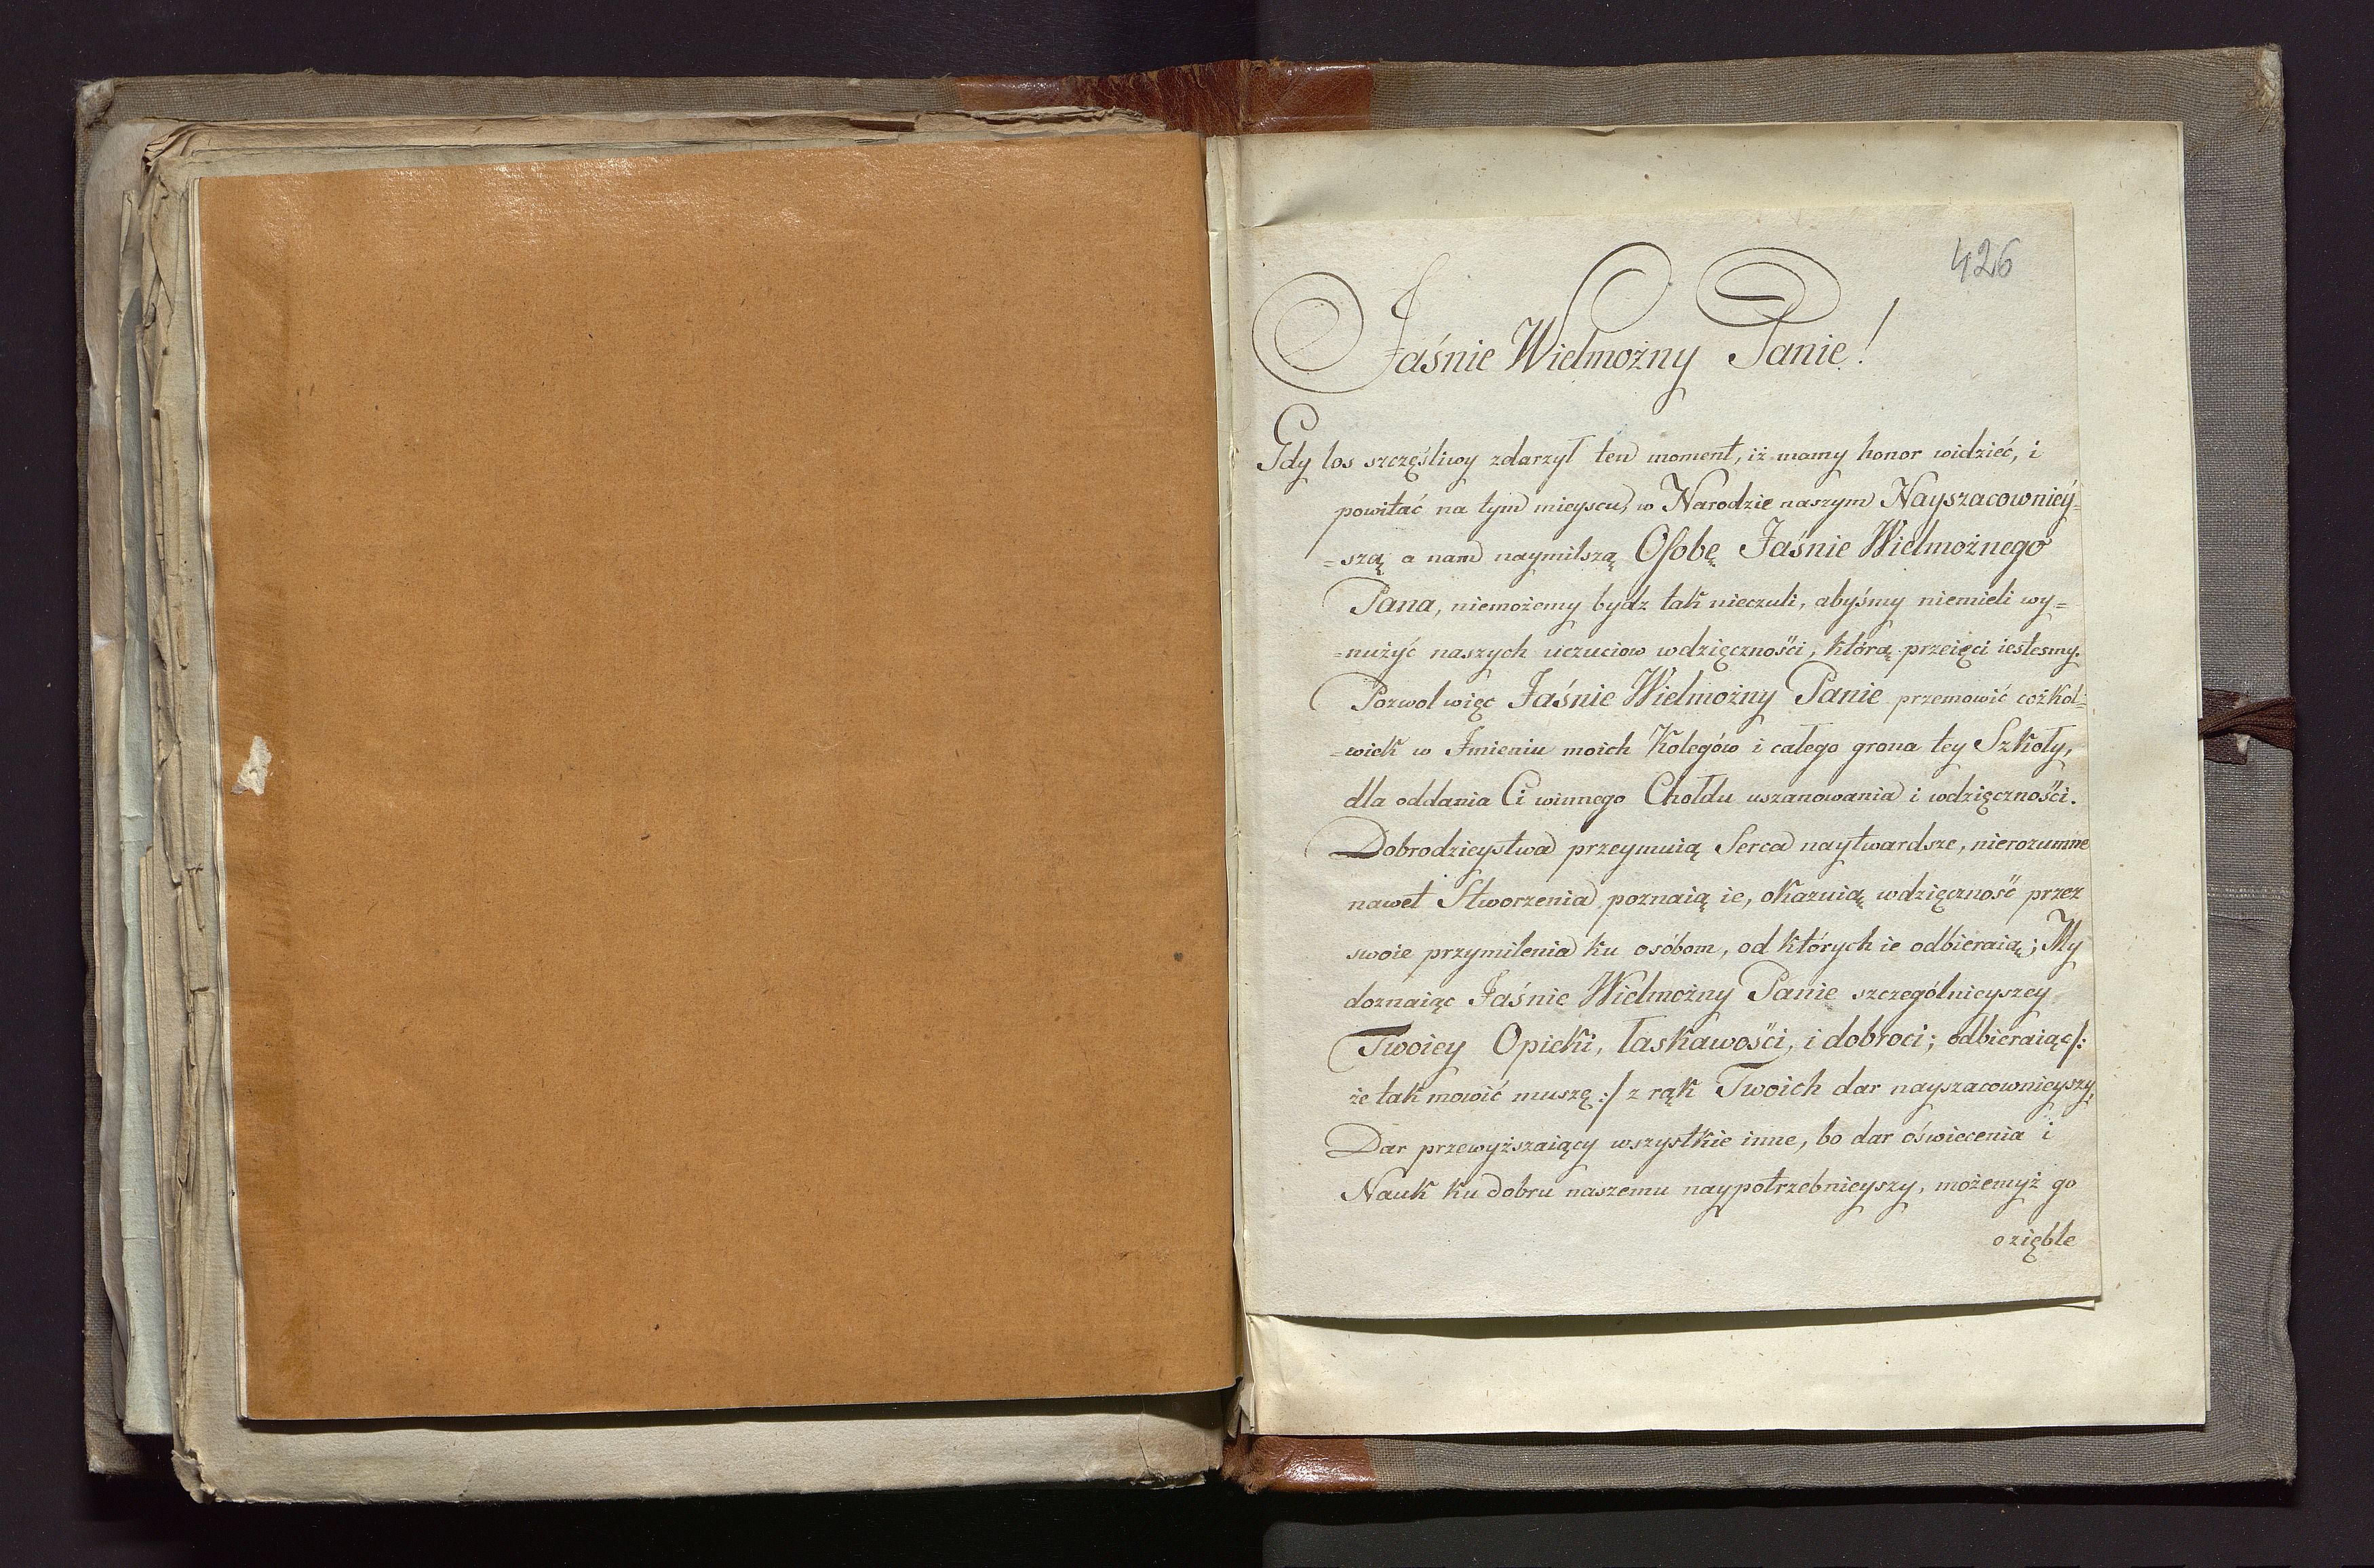 426
Jaśnie Wielmożny Panie!
Gdy los szczęśliwy zdarzył ten moment, iż mamy honor widzieć, i
powitać na tym mieyscu, w Narodzie naszym Nayszacownieÿ=
=szą a nam naymilszą Osobę Jaśnie Wielmożnego
Pana, niemożemy bydz tak nieczuli, abyśmy niemieli wy=
=nużyć naszych uczuciow wdzięczności, którą przeięci iestesmy.
Pozwol więc Jaśnie Wielmożny Panie przemowić cożkól=
=wiek w Jmieniu moich Kolegów i całego grona tey Szkoły,
dla oddania Ci winnego Chołdu uszanowania i wdzięczności.
Dobrodzieystwa przeymuią Serca naytwardsze, nierozumne
nawet Stworzenia poznaią ie, okazuią wdzięczność przez
swoie przymilenia ku osóbom, od których ie odbieraią; My
doznaiąc Jaśnie Wielmożny Panie szczególnieyszey
Twoiey Opieki, łaskawości, i dobroci; odbieraiąc/:
że tak mowić muszę :/ z rąk Twoich dar nayszacownieyszy,
Dar przewyższaiący wszystkie inne, bo dar oświecenia i
Nauk ku dobru naszemu naypotrzebnieyszy, możemyż go
ozięble